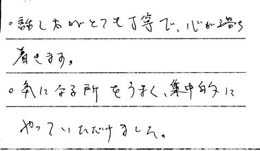 。話し方がとても丁寧で、心が落ち
着きます。
。気になる所をうまく、集中的に
やっていただけました。